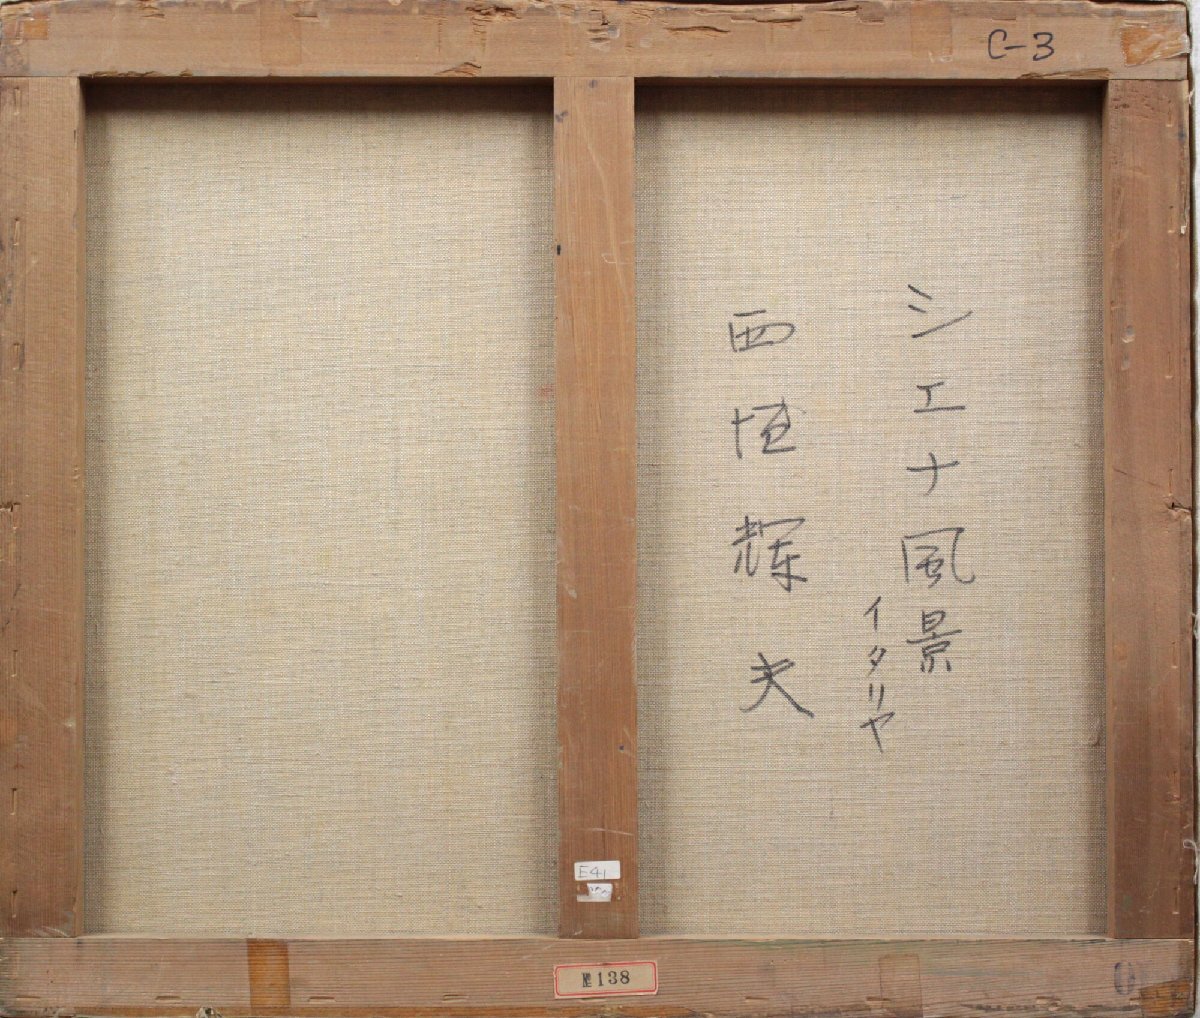 C-3
シエナ風景
イタリヤ
西垣輝夫
E41
№138